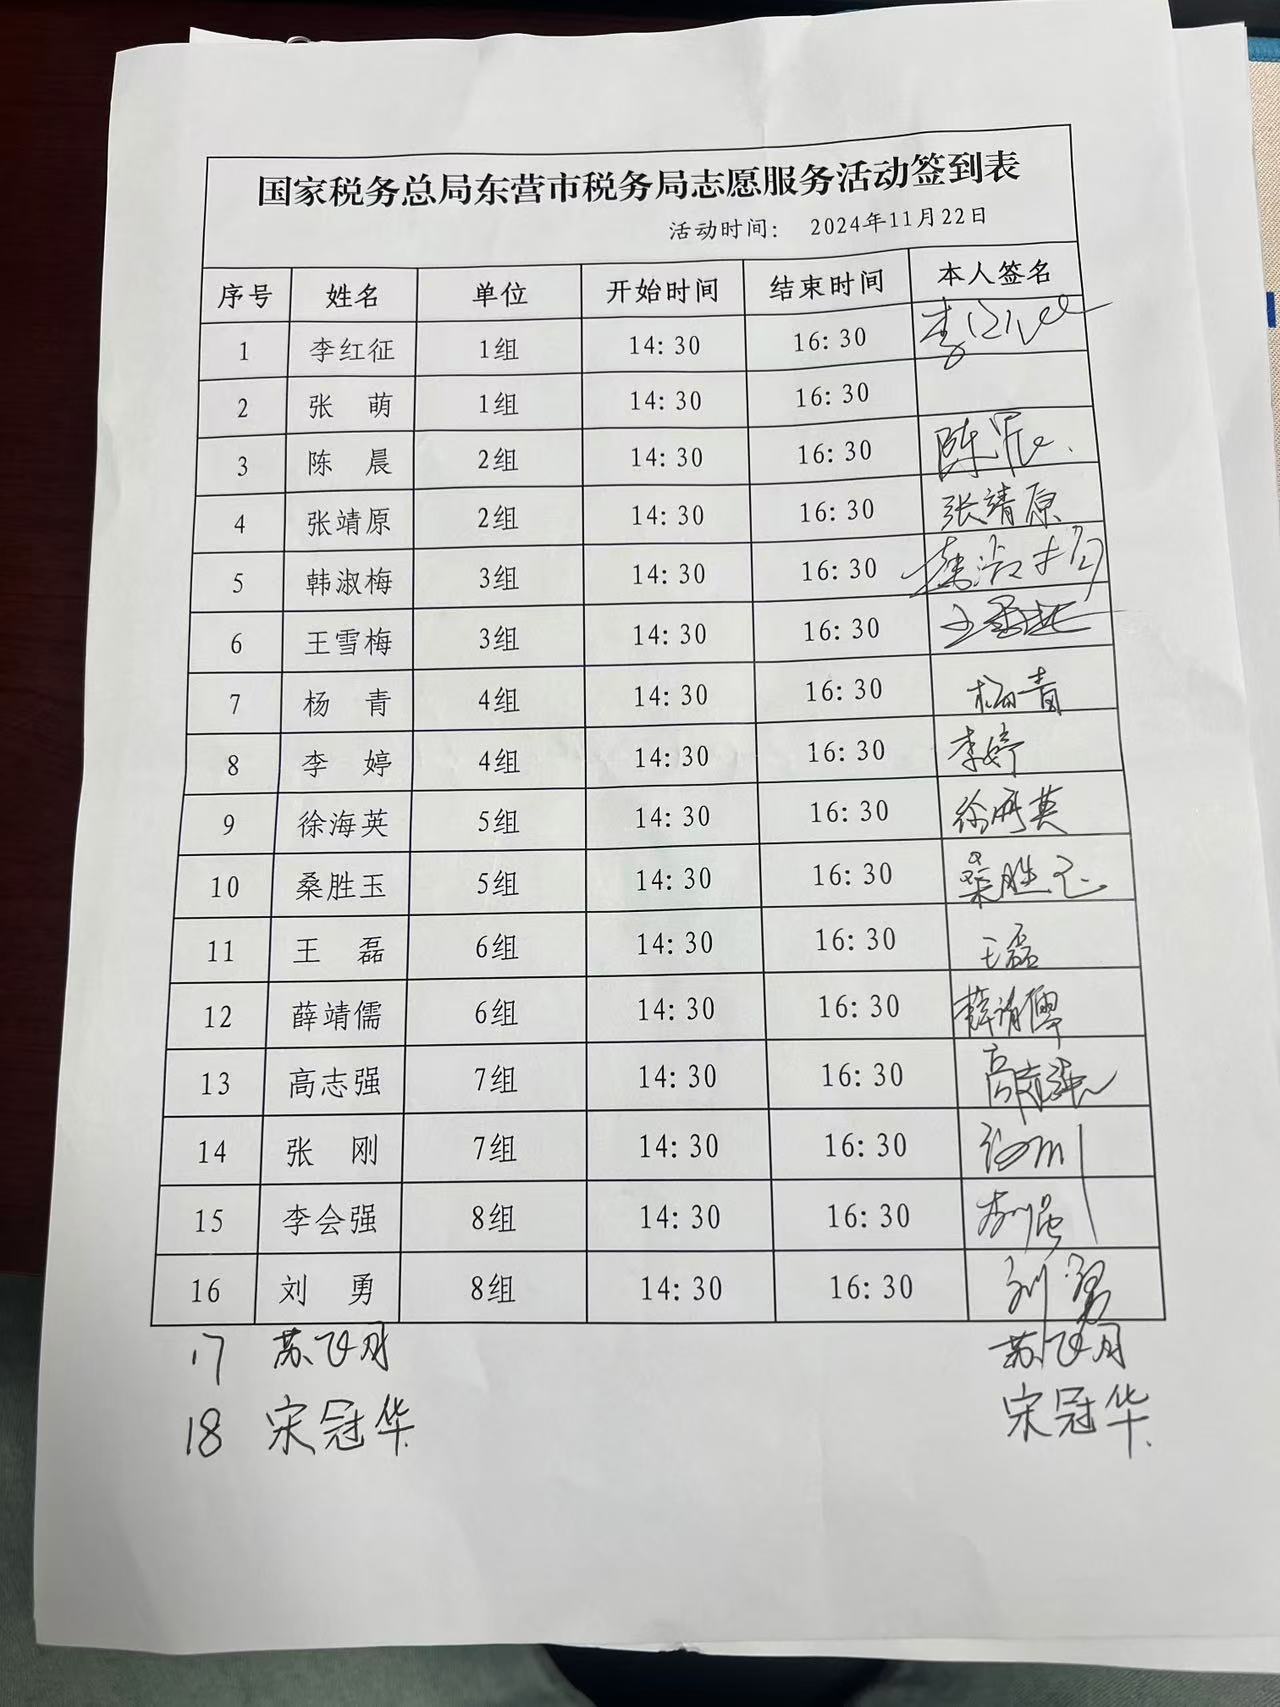 国家税务总局东营市税务局志愿服务活动签到表
活动时间： 2024年11月22日
序号 姓名 单位 开始时间 结束时间 本人签名
1 李红征 1组 14:30 16:30
2 张 萌 1组 14:30 16:30
3 陈 晨 2组 14:30 16:30 陈晨
4 张靖原 2组 14:30 16:30 张靖原
5 韩淑梅 3组 14:30 16:30
6 王雪梅 3组 14:30 16:30
7 杨 青 4组 14:30 16:30 杨青
8 李 婷 4组 14:30 16:30 李婷
9 徐海英 5组 14:30 16:30 徐海英
10 桑胜玉 5组 14:30 16:30 桑胜玉
11 王 磊 6组 14:30 16:30 王磊
12 薛靖儒 6组 14:30 16:30 薛靖儒
13 高志强 7组 14:30 16:30 高志强
14 张 刚 7组 14:30 16:30
15 李会强 8组 14:30 16:30
16 刘 勇 8组 14:30 16:30 刘勇
17 苏飞月 苏飞月
18 宋冠华 宋冠华